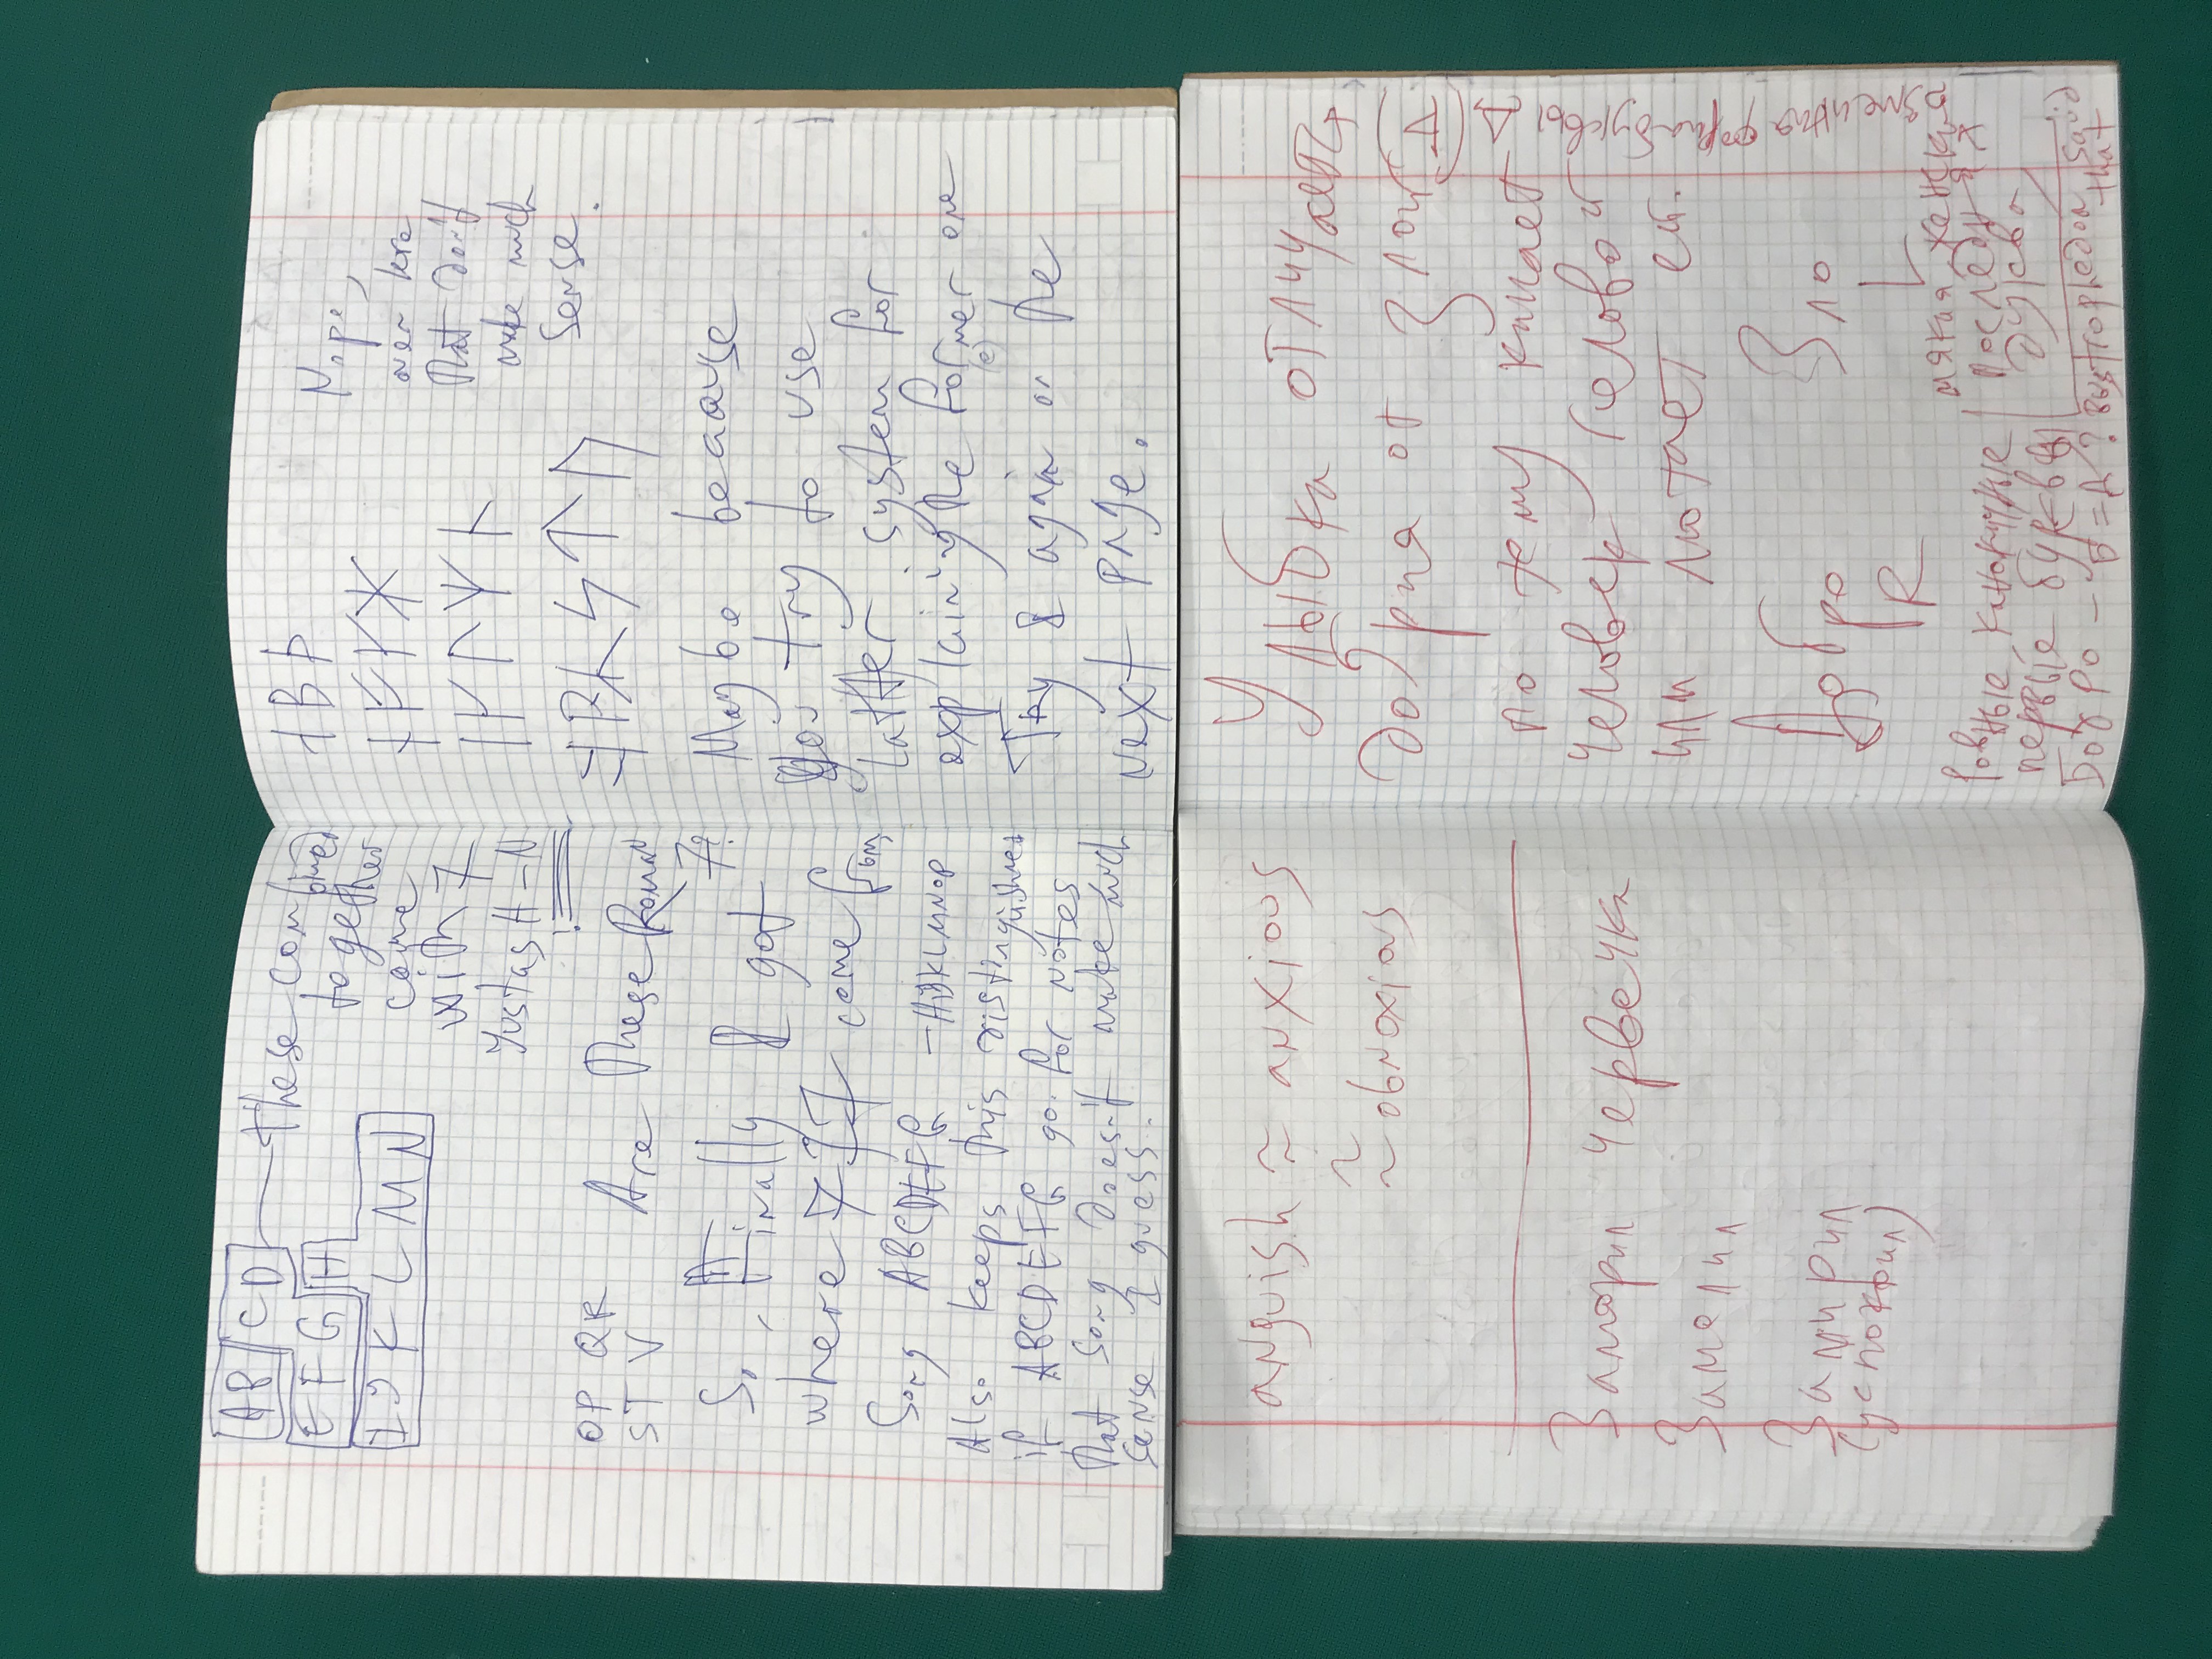 AB CD
EFG H
IJ K L M N
these combined
together
come
with 7
Just as H-N
!
OP QR
ST V
Are these Roman
7?
So, Finally I got
where 7-77 come from
Song ABCDEFG -HIJKLMNOP
Also keeps this distinguished
if ABCDEFG go for notes
that song doesn't make much
sense I guess.
Nope,
even here
that don't
make much
sense.
ᛒ ᚦ
ᛏ ᚢ
Maybe because
you try to use
latter system for
explaining the former one
(e)
Try I again on the
next page.
anguish ≈ anxious
≈ obnoxious
Заморил червечка
Замолил
Замирил
(успокоил)
Улыбка отличуается
добрия от злой
по тему кикает
человек головой
или мотает ей.
Добро Зло
R L
Ровные каноничные
первые буквы
Бодро - Б=Д?
мякия женския
последн
буква
Bustrophedon said
that
изменния форма буквы Д (A)